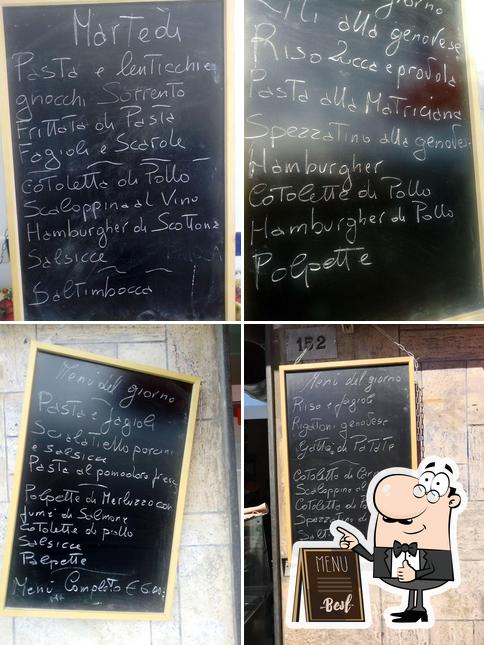 Martedì
Pasta e lenticchie
gnocchi Sorrento
Frittata di Pasta
Fagioli e Scarole
Cotoletta di Pollo
Scaloppina al Vino
Hamburgher di Scottona
Salsicce
Saltimbocca
giorno
Ziti alla genovese
Riso Zucca e provola
Pasta alla Matriciana
Spezzatino alla genovese
Hamburgher
Cotolette di Pollo
Hamburgher di Pollo
Polpette
Menù del giorno
Pasta e fagioli
Scialatiello porcini
e salsicce
Pasta al pomodoro fresc
Polpette di Merluzzo con
fumè di Salmone
Cotolette di pollo
Salsicce
Polpette
Menù Completo € 6.00
152
Menù del giorno
Riso e fagioli
Rigatoni genovese
Gattò di Patate
Cotoletta di Car
Scaloppine al
Cotoletta di Po
Spezzatino di
Salt
MENU
Best